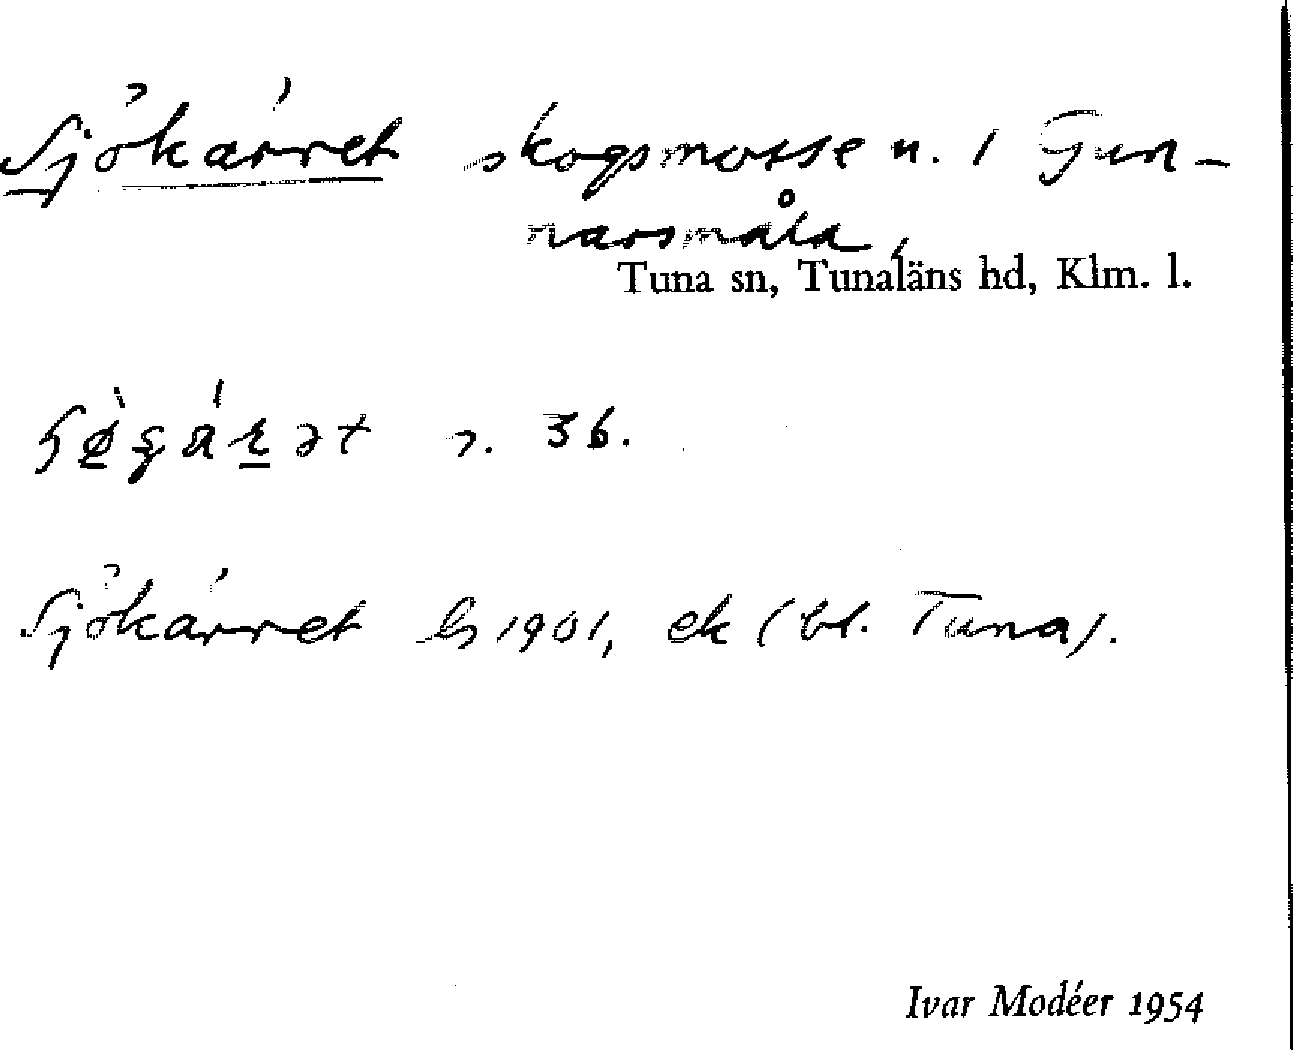 Sjökärret skogsmosse n. / Gun-
narsmåla,
Tuna sn, Tunaläns hd, Klm. l.
36.
Sjökärret 1901, ek (bl. Tuna).
Ivar Modéer 1954